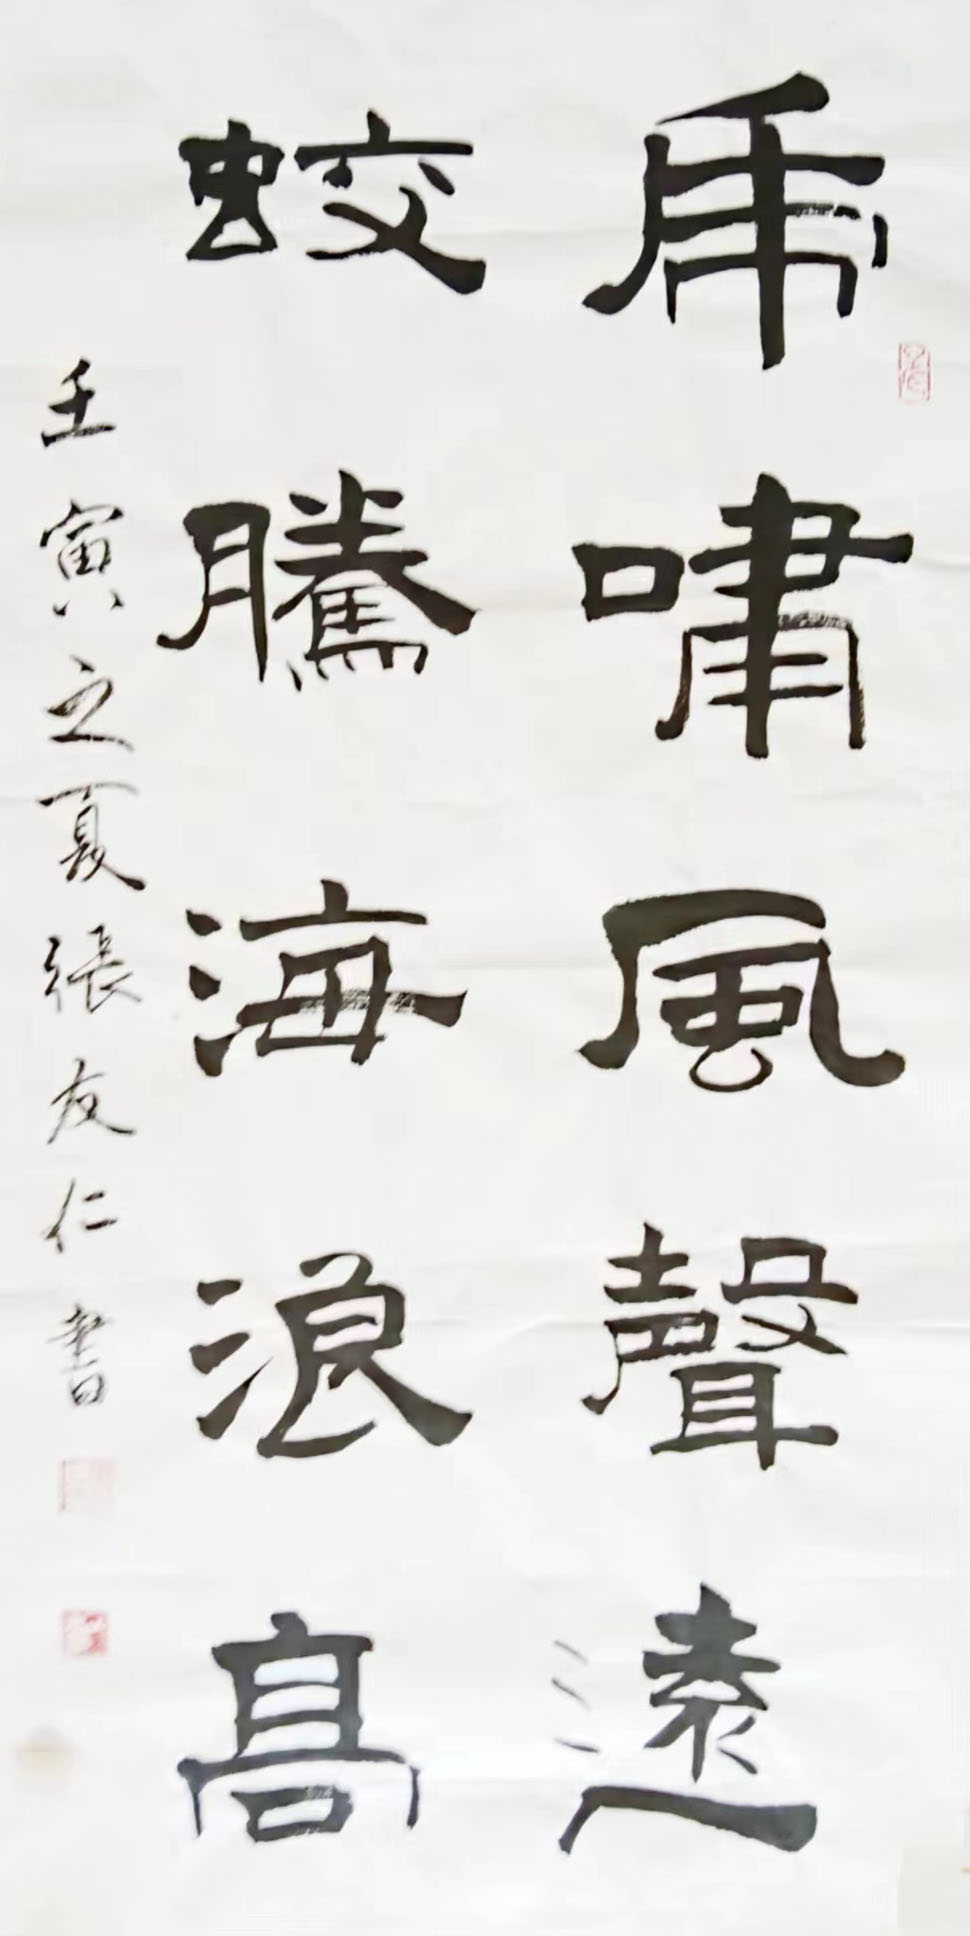 虎嘯風聲遠
蛟騰海浪高
壬寅之夏張友仁書